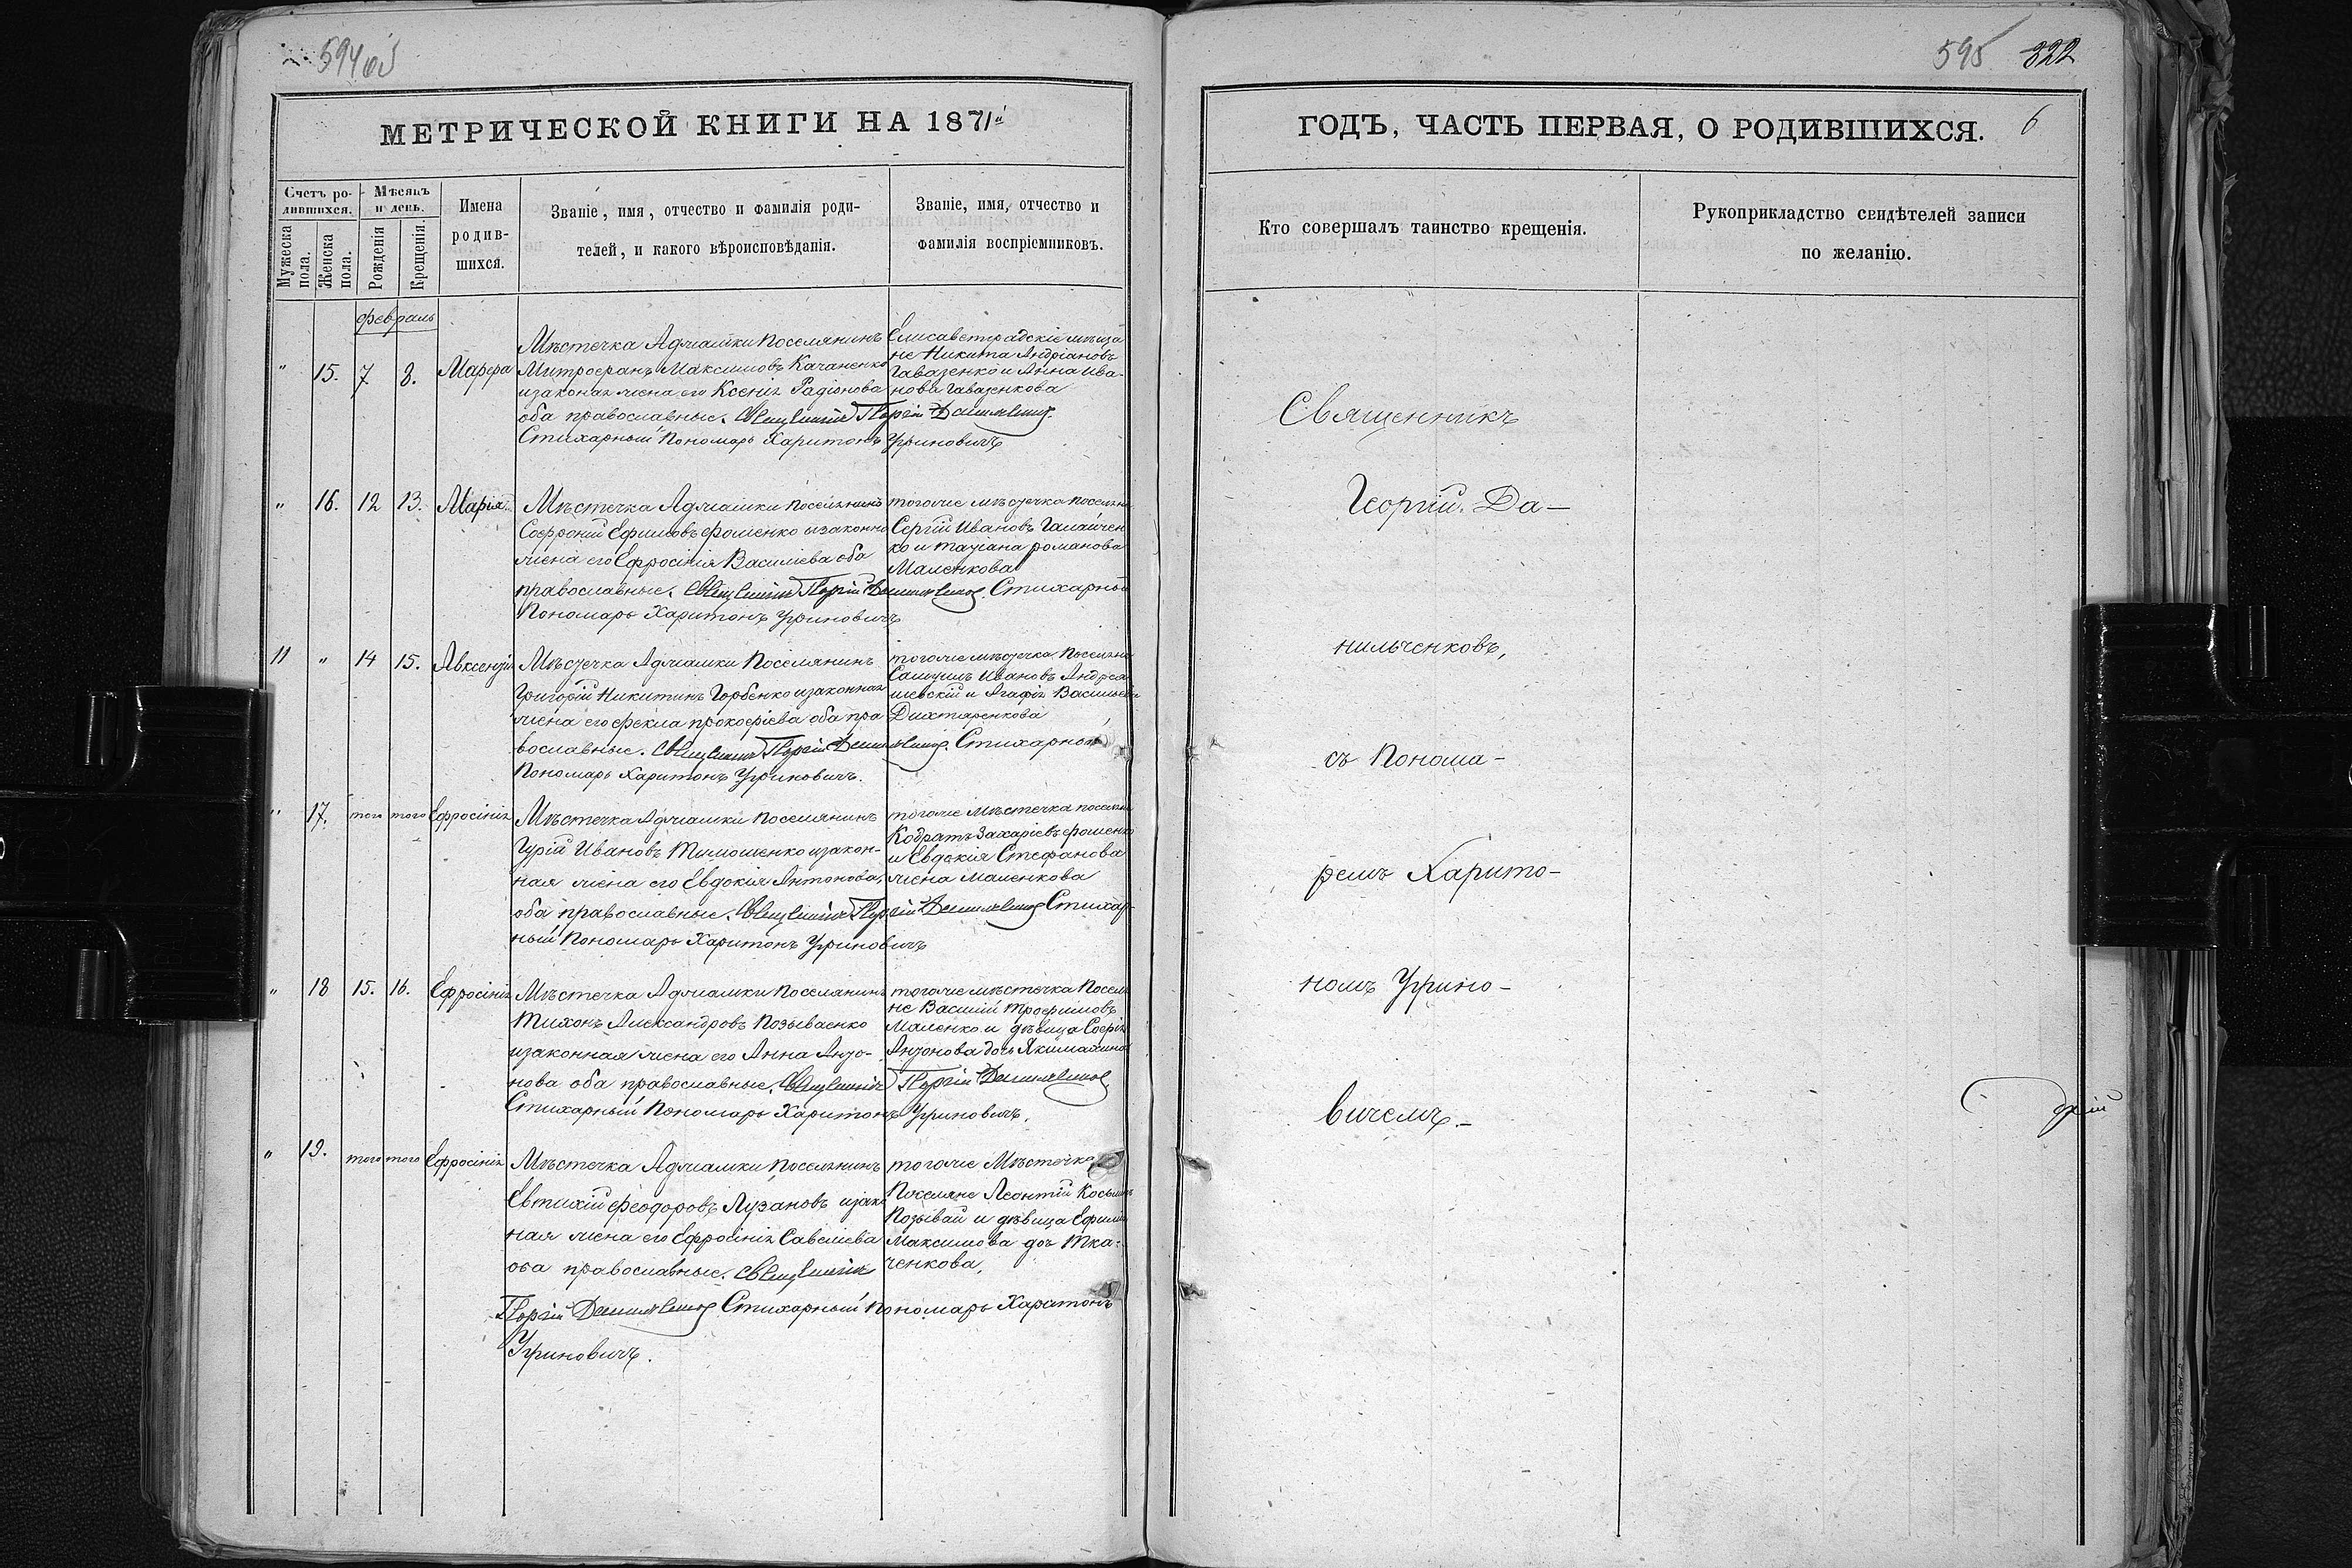 594 об
МЕТРИЧЕСКОЙ КНИГИ НА 1871й
Счетъ ро-
дившихся.
Мѣсяцъ
и день.
Имена
родив-
шихся.
Званіе, имя, отчество и фамилія роди-
телей, и какого вѣроисповѣданія.
Званіе, имя, отчество и
фамилія воспріемниковъ.
Мужеска пола.
Женска пола.
Рожденія
Крещенія.
февраль
" 15. 7 8. Марфа
Мѣстечка Аджамки Поселянинъ
Митрофанъ Максимовъ Качаненко
изаконая жена его Ксенія Радіонова
оба православные. Священникъ Георгій Данильченковъ.
Стихарный Пономарь Харитонъ Угриновичъ
Елисаветградскіе мѣща
не Никита Андріановъ
Гавазенко и Анна Ива-
нова Гавазенкова
" 16. 12 13. Марія
Мѣстечка Аджамки поселянинъ
Софроній Ефимовъ Фоменко изаконна
жена его Ефросинія Василіева оба
православные. Священникъ Георгій Данильченковъ. Стихарный
Пономарь Харитонъ Угриновичъ
тогоже мѣстечка поселяне
Сергій Ивановъ Галайчен
ко и татіана романова
Маленкова
11 " 14 15. Авксентій
Мѣстечка Аджамки Поселянинъ
Григорій Никитинъ Горбенко изаконная
жена его Фекла прокофіева оба пра
вославные. Священникъ Георгій Данильченковъ. Стихарный
Пономарь Харитонъ Угриновичъ.
тогоже мѣстечка Поселяне
Самуилъ Ивановъ Андреа
шевскій и Агафія Васильева
Дихтяренкова
" 17. того того Ефросинія
Мѣстечка Аджамки поселянинъ
Гурій Ивановъ Тимошенко изакон-
ная жена его Евдокія Антонова,
оба православные. Священникъ Георгій Данильченковъ Стихар-
ный Пономарь Харитонъ Угриновичъ
тогоже мѣстечка поселяне
Кодратъ Захаріевъ Фоменко
и Евдокія Стефанова
жена Маленкова
" 18 15. 16. Ефросинія
Мѣстечка Аджамки Поселянинъ
Тихонъ Александровъ Позываенко
изаконная жена его Анна Анто-
нова оба православные. Священникъ Георгій Данильченковъ
Стихарный Пономарь Харитонъ Угриновичъ.
тогоже мѣстечка Поселя
не Василій Трофимовъ
Маленко и дѣвица Софія
Антонова дочь
" 19. того того Ефросинія
Мѣстечка Аджамки поселянинъ
Евтихій Феодоровъ Лузановъ изако
ная жена его Ефросинія Савеліева
оба православные. Священникъ
Георгій Данильченковъ Стихарный пономарь Харитонъ
Угриновичъ.
тогоже Мѣстечка
Поселяне Леонтій Косьминъ
Позывай и дѣвица Ефимія
Максимова доч Тка-
ченкова,
595 322
ГОДЪ, ЧАСТЬ ПЕРВАЯ, О РОДИВШИХСЯ. 6
Кто совершалъ таинство крещенія.
Рукоприкладство свидѣтелей записи
по желанію.
Священникъ
Георгій Да-
нильченковъ,
съ Понома-
ремъ Харито-
номъ Угрино-
вичемъ.-